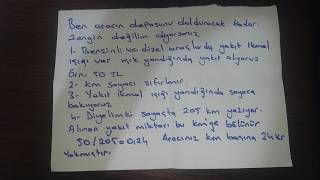 Ben aracın deposunu dolduracak kadar
zengin değilim diyorsanız
1- Benzinli ve dizel araçlarda yakıt ikmal
ışığı var ışık yandığında yakıt alıyoruz
Örn: 50 TL
2- km sayacı sıfırlanır.
3- Yakıt ikmal ışığı yandığında sayaca
bakıyoruz
4- Diyelimki sayaçta 205 km yazıyor.
Alınan yakıt miktarı bu km'ye bölünür
50/205=0,24 Aracınız km başına 24 kr
yakmıştır.